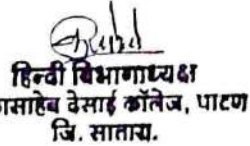 हिन्दी विभागाध्यक्ष
सासाहेब देसाई कॉलेज, पाटण
जि. सातारा.